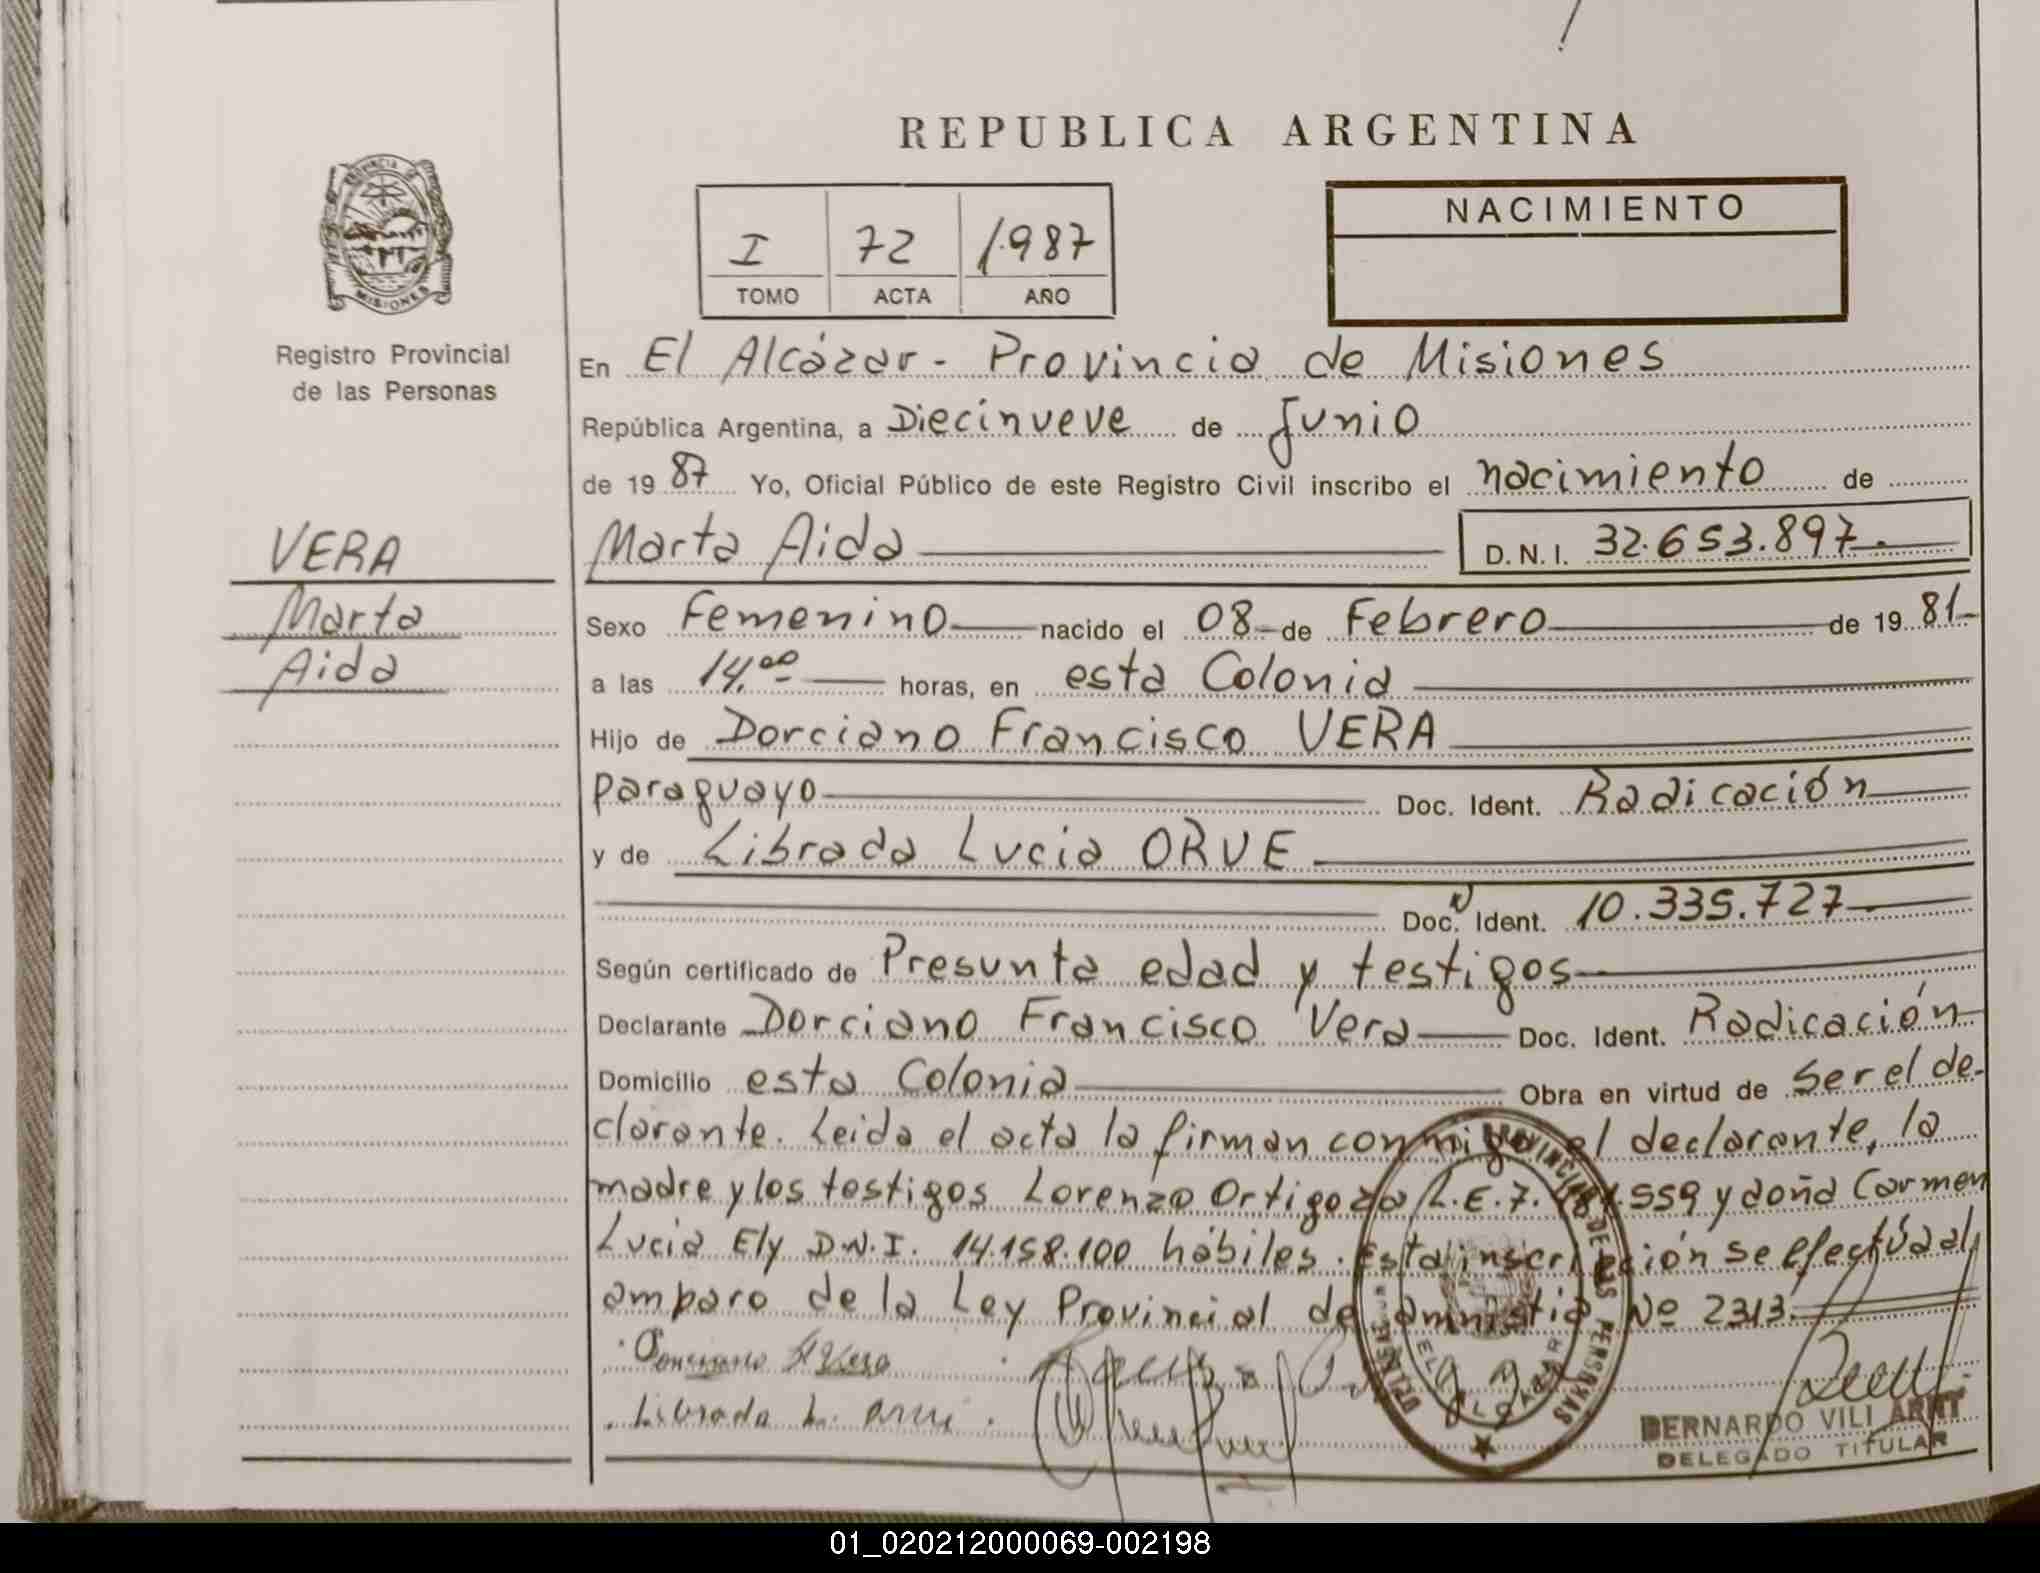 REPUBLICA ARGENTINA
PROVINCIA DE
MISIONES
Registro Provincial
de las Personas
I 72 1.987
TOMO ACTA AÑO
NACIMIENTO
En El Alcázar - Provincia de Misiones
República Argentina, a Diecinueve de Junio
de 19 87 Yo, Oficial Público de este Registro Civil inscribo el nacimiento de
VERA
Marta
Aida
Marta Aida D.N.I. 32.653.897.
Sexo Femenino nacido el 08 de Febrero de 19 81
a las 14,00 horas, en esta Colonia
Hijo de Dorciano Francisco VERA
paraguayo Doc. Ident. Radicación
y de Librada Lucia ORUE
Doc. Ident. 10.335.727
Según certificado de Presunta edad y testigos
Declarante Dorciano Francisco Vera Doc. Ident. Radicación
Domicilio esta Colonia Obra en virtud de Ser el de-
clarante. Leida el acta la firman conmigo el declarante, la
madre y los testigos Lorenzo Ortigoza L.E. 7. 559 y doña Carmen
Lucia Ely D.N.I. 14.158.100 hábiles. Esta inscripción se efectúa al
amparo de la Ley Provincial de amnistia Nº 2313.
Librada L.
PROVINCIAL DE LAS PERSONAS
EL ALCAZAR
BERNARDO VILI ARNT
DELEGADO TITULAR
01_020212000069-002198